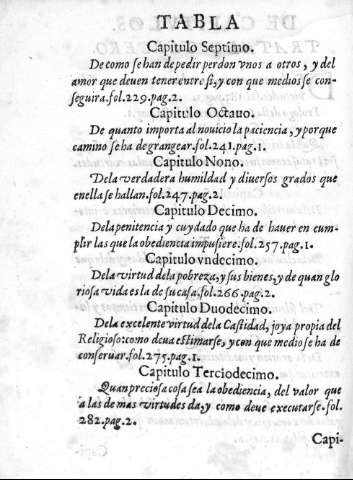 TABLA
Capitulo Septimo.
De como se han de pedir perdon vnos a otros, y del
amor que deuen tener entre si, y con que medios se con-
seguira.fol.229.pag.2.
Capitulo Octauo.
De quanto importa al nouicio la paciencia, y porque
camino se ha de grangear.fol.241.pag.1.
Capitulo Nono.
De la verdadera humildad y diuersos grados que
en ella se hallan.fol.247.pag.2.
Capitulo Decimo.
De la penitencia y cuydado que ha de hauer en cum-
plir las que la obediencia impusiere.fol.257.pag.1.
Capitulo vndecimo.
De la virtud de la pobreza, y sus bienes, y de quan glo
riosa vida es la de su casa.fol.266.pag.2.
Capitulo Duodecimo.
De la excelente virtud de la Castidad, joya propia del
Religioso:como deua estimarse, y con que medio se ha de
conseruar.fol.275.pag.1.
Capitulo Terciodecimo.
Quan preciosa cosa sea la obediencia, del valor que
a las de mas virtudes da, y como deue executarse.fol.
282.pag.2.
Capi-